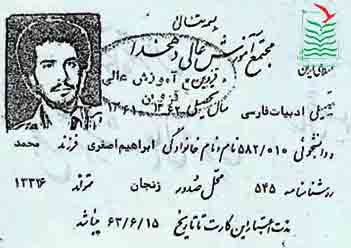 مجتمع آموزش عالی دهخدا
قزوین
آموزش عالی
قزوین
سال تحصیلی ۱۳۶۲ - ۱۳۶۱
ادبیات فارسی
دانشجوئی ۵۸۲/۰۱۰ نام و نام خانوادگی ابراهیم اصغری فرزند محمد
شناسنامه ۵۴۵ محل صدور زنجان متولد ۱۳۳۶
مدت اعتبار این کارت تا تاریخ ۶۳/۶/۱۵ میباشد